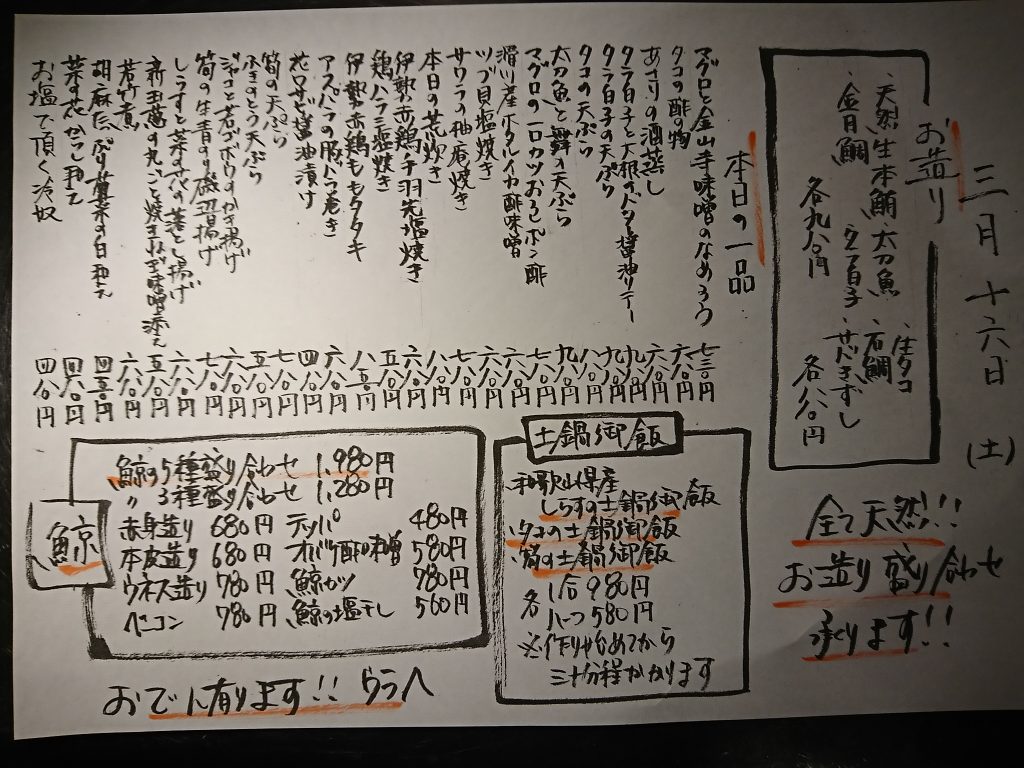 三月十六日(土)
お造り
・天然生本鮪 ・太刀魚 ・庄タコ
・金目鯛 ・タラ白子 ・石鯛
・サバきずし
各九八〇円
各八八〇円
全て天然!!
お造り盛り合わせ
承ります!!
本日の一品
マグロと金山寺味噌のなめろう 七三〇円
タコの酢の物 六八〇円
あさりの酒蒸し 六八〇円
タラ白子と大根のバター醤油ソテー 九八〇円
タラ白子の天ぷら 九八〇円
タコの天ぷら 八八〇円
太刀魚と舞茸の天ぷら 九八〇円
マグロの一口カツおろしポン酢 九八〇円
滑川産ホタルイカ酢味噌 六八〇円
ツブ貝塩焼き 六八〇円
サワラの柚庵焼き 七八〇円
本日のあら炊き 八八〇円
伊勢赤鶏手羽先塩焼き 六八〇円
鶏ハラミ塩焼き 五八〇円
伊勢赤鶏ももタタキ 八五〇円
アスパラの豚バラ巻き 六八〇円
花ワサビ醤油漬け 四八〇円
筍の天ぷら 七八〇円
ふきのとう天ぷら 五八〇円
ジャコと若ゴボウのかき揚げ 六八〇円
筍の生青のり磯辺揚げ 七八〇円
しらすと菜の花の落とし揚げ 六八〇円
新玉葱の丸ごと焼きねぎ味噌添え 五八〇円
若竹煮 六八〇円
胡麻たっぷり菊菜の白和え 四五〇円
菜の花からし和え 四八〇円
お塩で頂く冷奴 四八〇円
土鍋御飯
和歌山県産
しらすの土鍋御飯
タコの土鍋御飯
筍の土鍋御飯
各 1合 980円
ハーフ 580円
※作り始めてから
三十分程かかります
鯨
鯨の5種盛り合わせ 1,980円
〃 3種盛り合わせ 1,280円
赤身造り 680円 テッパ 480円
本皮造り 680円 オバケ酢味噌 580円
ウネス造り 780円 鯨カツ 780円
ベーコン 780円 鯨の塩干し 560円
おでん有ります!! ウラへ